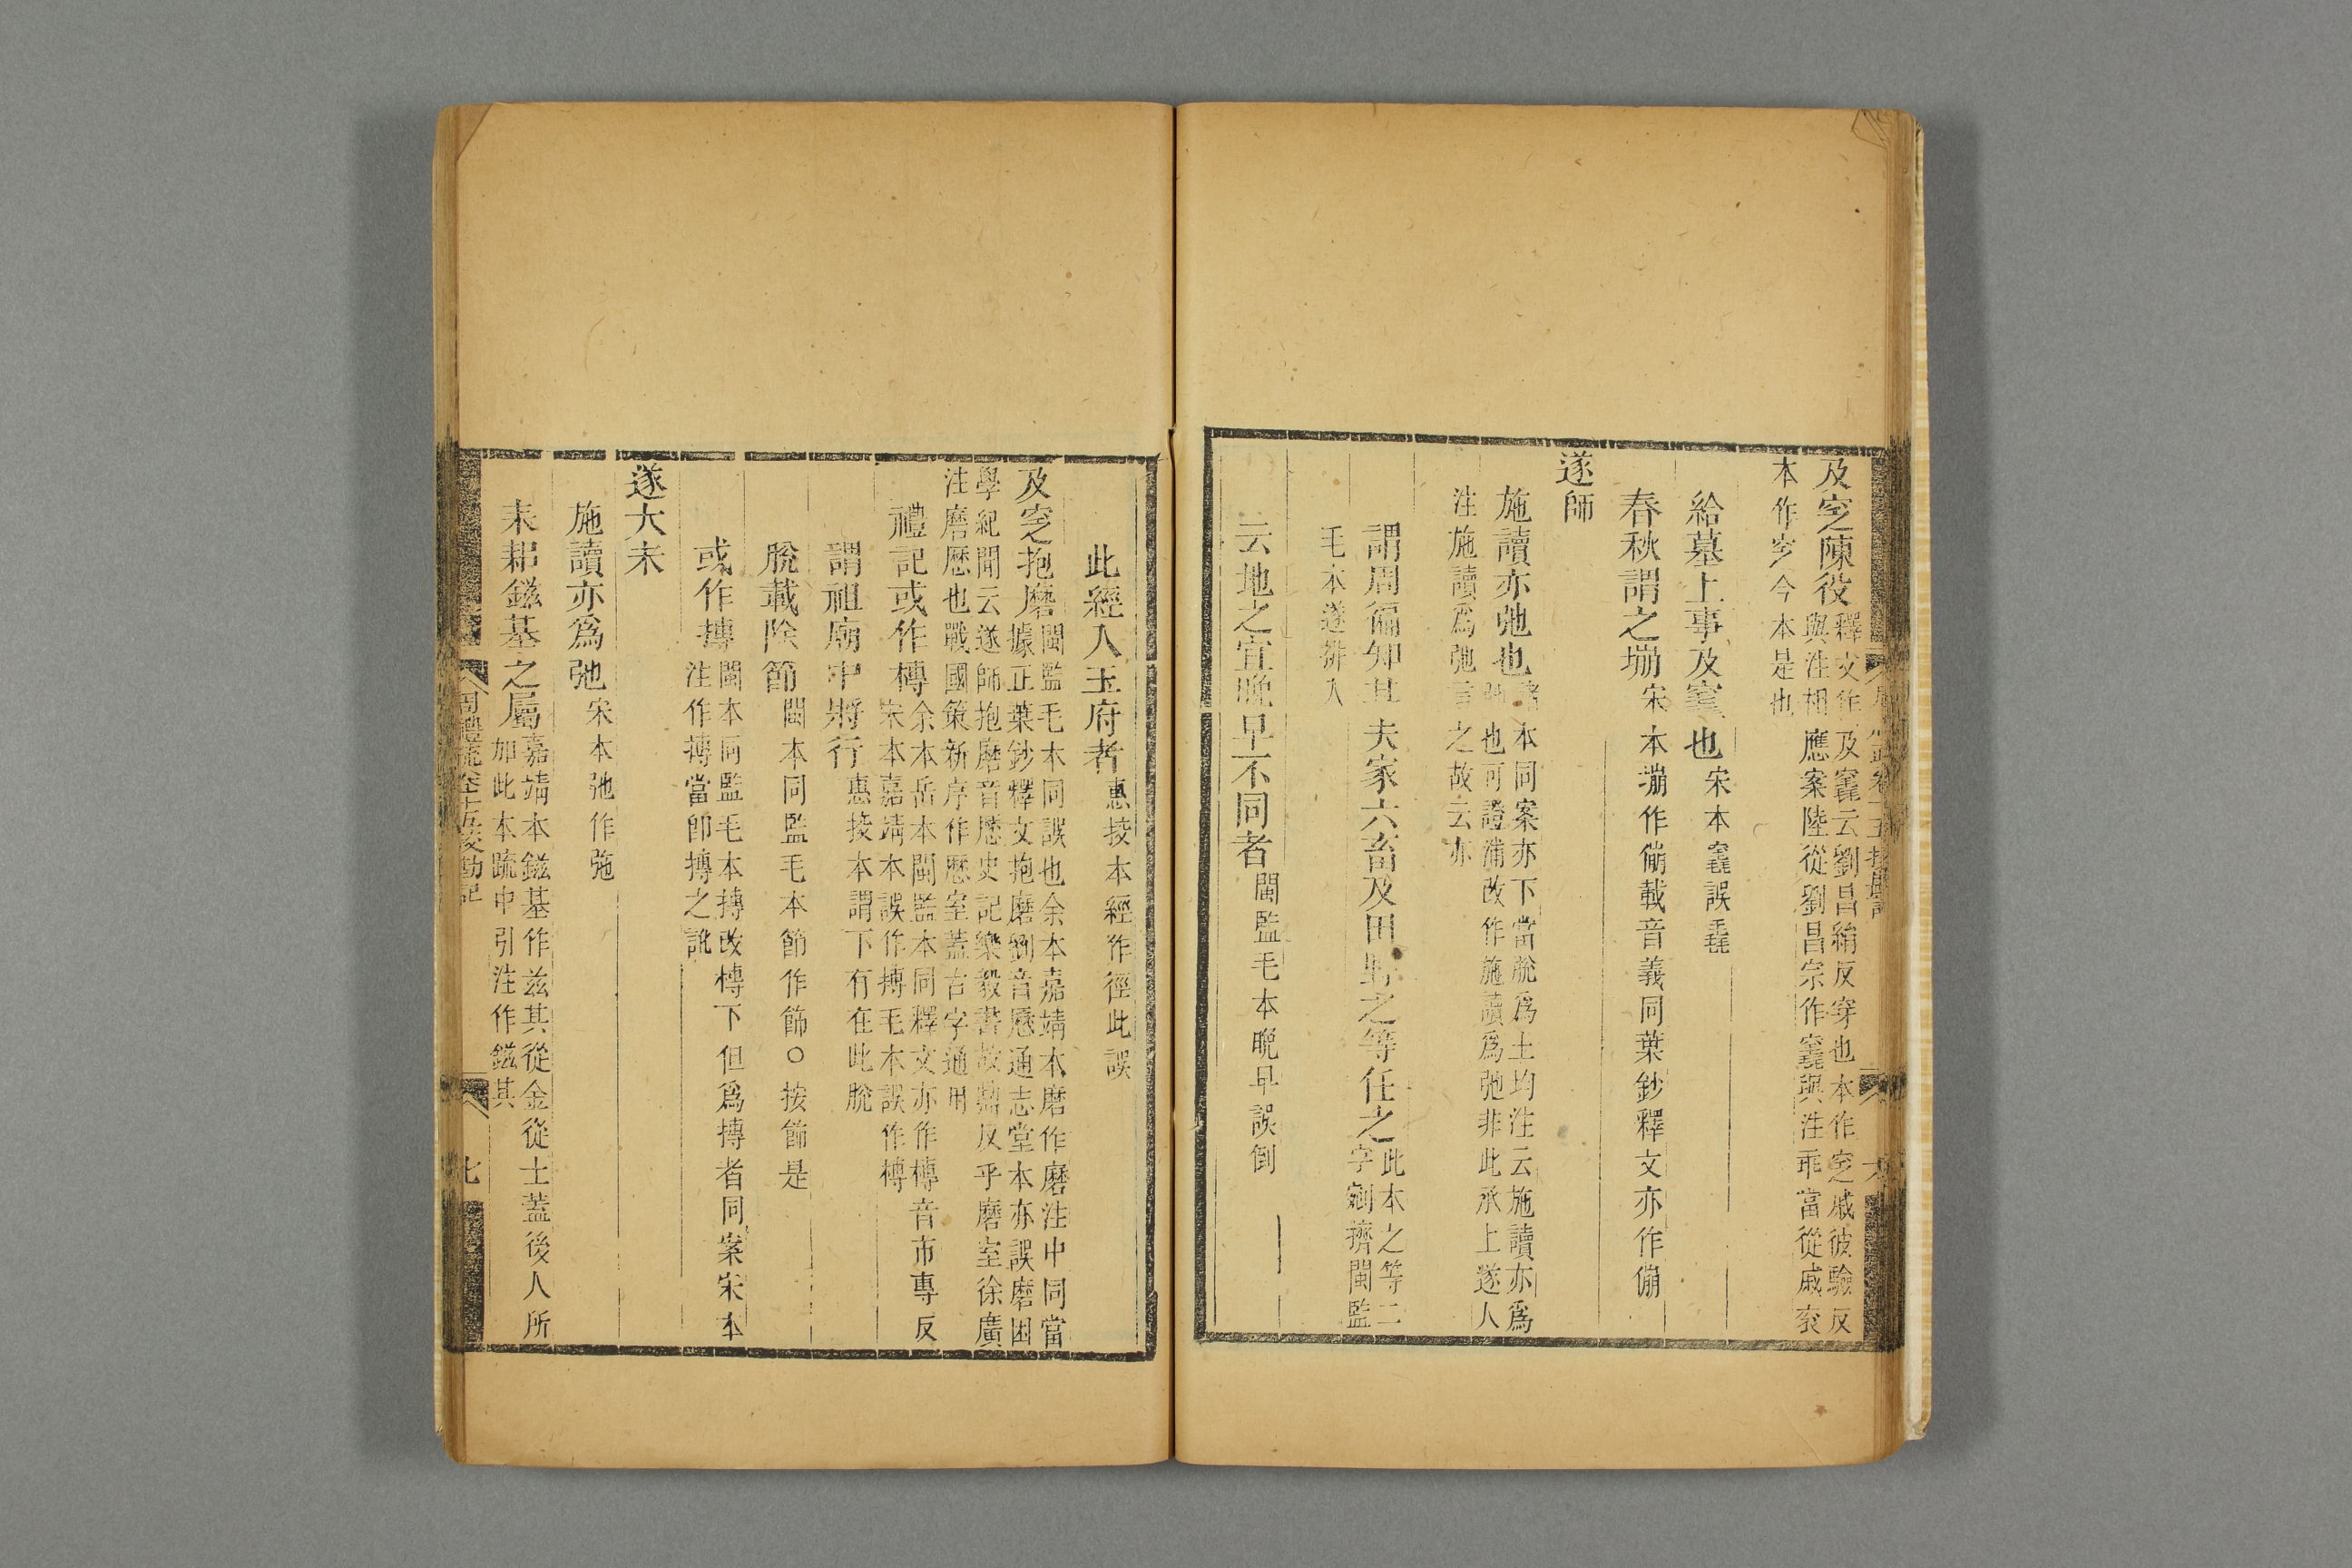 及窆陳役釋文作及竁云劉昌絹反穿也本作窆戚彼驗反
與注相應案陸從劉昌宗作竁與注乖當從戚袞
本作窆今本是也
給墓上事及竁也宋本竁誤毳
春秋謂之塴宋本塴作傰載音義同葉鈔釋文亦作傰
遂師
施讀亦弛也諸本同案亦下當脫爲土均注云施讀亦爲
弛也可證浦改作施讀爲弛非此承上遂人
注施讀爲弛言之故云亦
謂周徧知其夫家六畜及田野之等任之此本之等二
字剜擠閩監
毛本遂排入
云地之宜晚早不同者閩監毛本晚早誤倒
此經入玉府者惠挍本經作徑此誤
及窆抱磨閩監毛本同誤也余本嘉靖本磨作磿注中同當
據正葉鈔釋文抱磿劉音歷通志堂本亦誤磨困
學紀聞云遂師抱磿音歷史記樂毅書故鼎反乎磿室徐廣
注磿歷也戰國策新序作歷室蓋古字通用
禮記或作槫余本岳本閩監本同釋文亦作槫音市專反
宋本嘉靖本誤作搏毛本誤作槫
謂祖廟中將行惠挍本謂下有在此脫
脫載除節閩本同監毛本節作飾○按飾是
或作摶閩本同監毛本摶改槫下但爲摶者同案宋本
注作摶當卽摶之訛
遂大夫
施讀亦爲弛宋本弛作㢮
耒耜鎡基之屬嘉靖本鎡基作兹其從金從土蓋後人所
加此本疏中引注作鎡其
周禮疏卷十五挍勘記